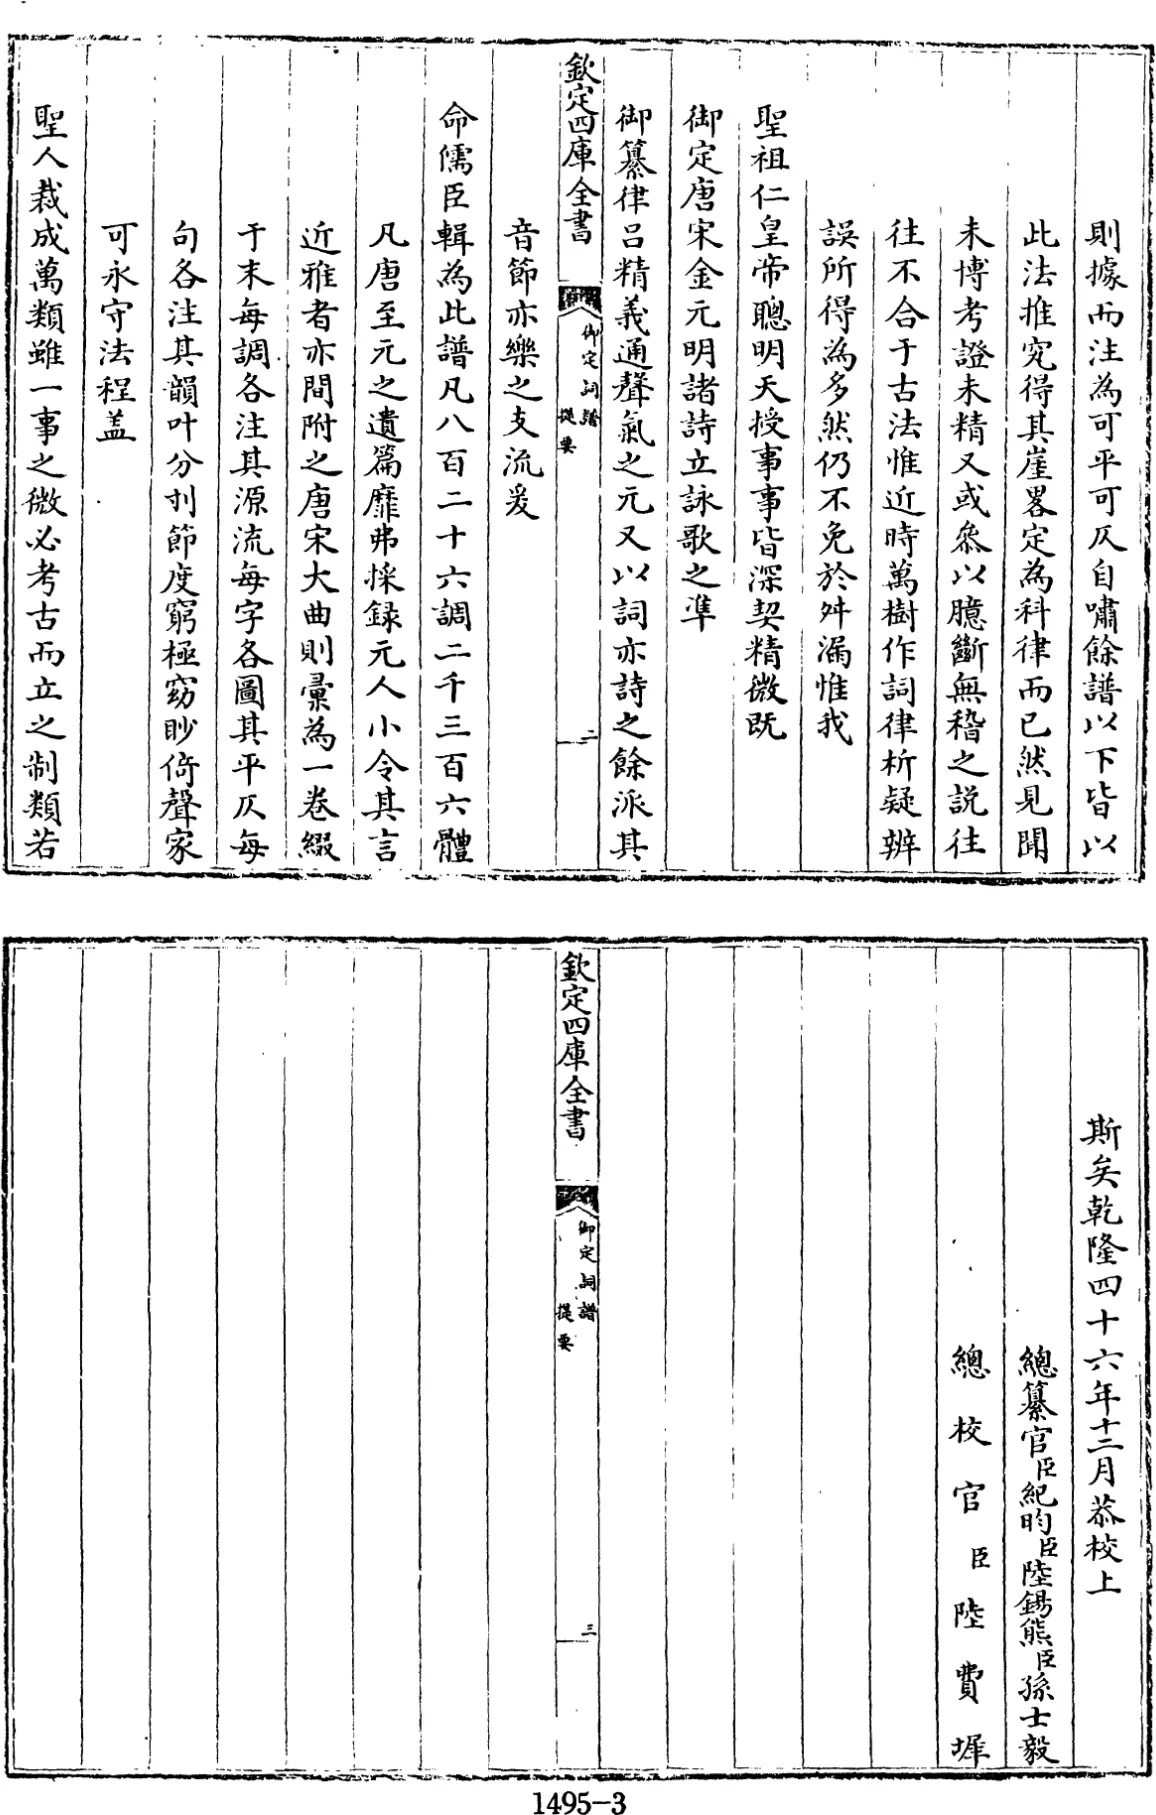 則據而注為可平可仄自嘯餘譜以下皆以
此法推究得其崖畧定為科律而已然見聞
未博考證未精又或叅以臆斷無稽之説往
往不合于古法惟近時萬樹作詞律析疑辨
誤所得為多然仍不免於舛漏惟我
聖祖仁皇帝聰明天授事事皆深契精微既
御定唐宋金元明諸詩立詠歌之凖
御纂律呂精義通聲氣之元又以詞亦詩之餘派其
欽定四庫全書
御定詞譜
提要
二
音節亦樂之支流爰
命儒臣輯為此譜凡八百二十六調二千三百六體
凡唐至元之遺篇靡弗採録元人小令其言
近雅者亦間附之唐宋大曲則彚為一卷綴
于末每調各注其源流每字各圖其平仄每
句各注其韻叶分刌節度窮極窈眇倚聲家
可永守法程盖
聖人裁成萬類雖一事之微必考古而立之制類若
斯矣乾隆四十六年十二月恭校上
總纂官臣紀昀臣陸錫熊臣孫士毅
總校官臣陸費墀
欽定四庫全書
御定詞譜
提要
三
1495-3